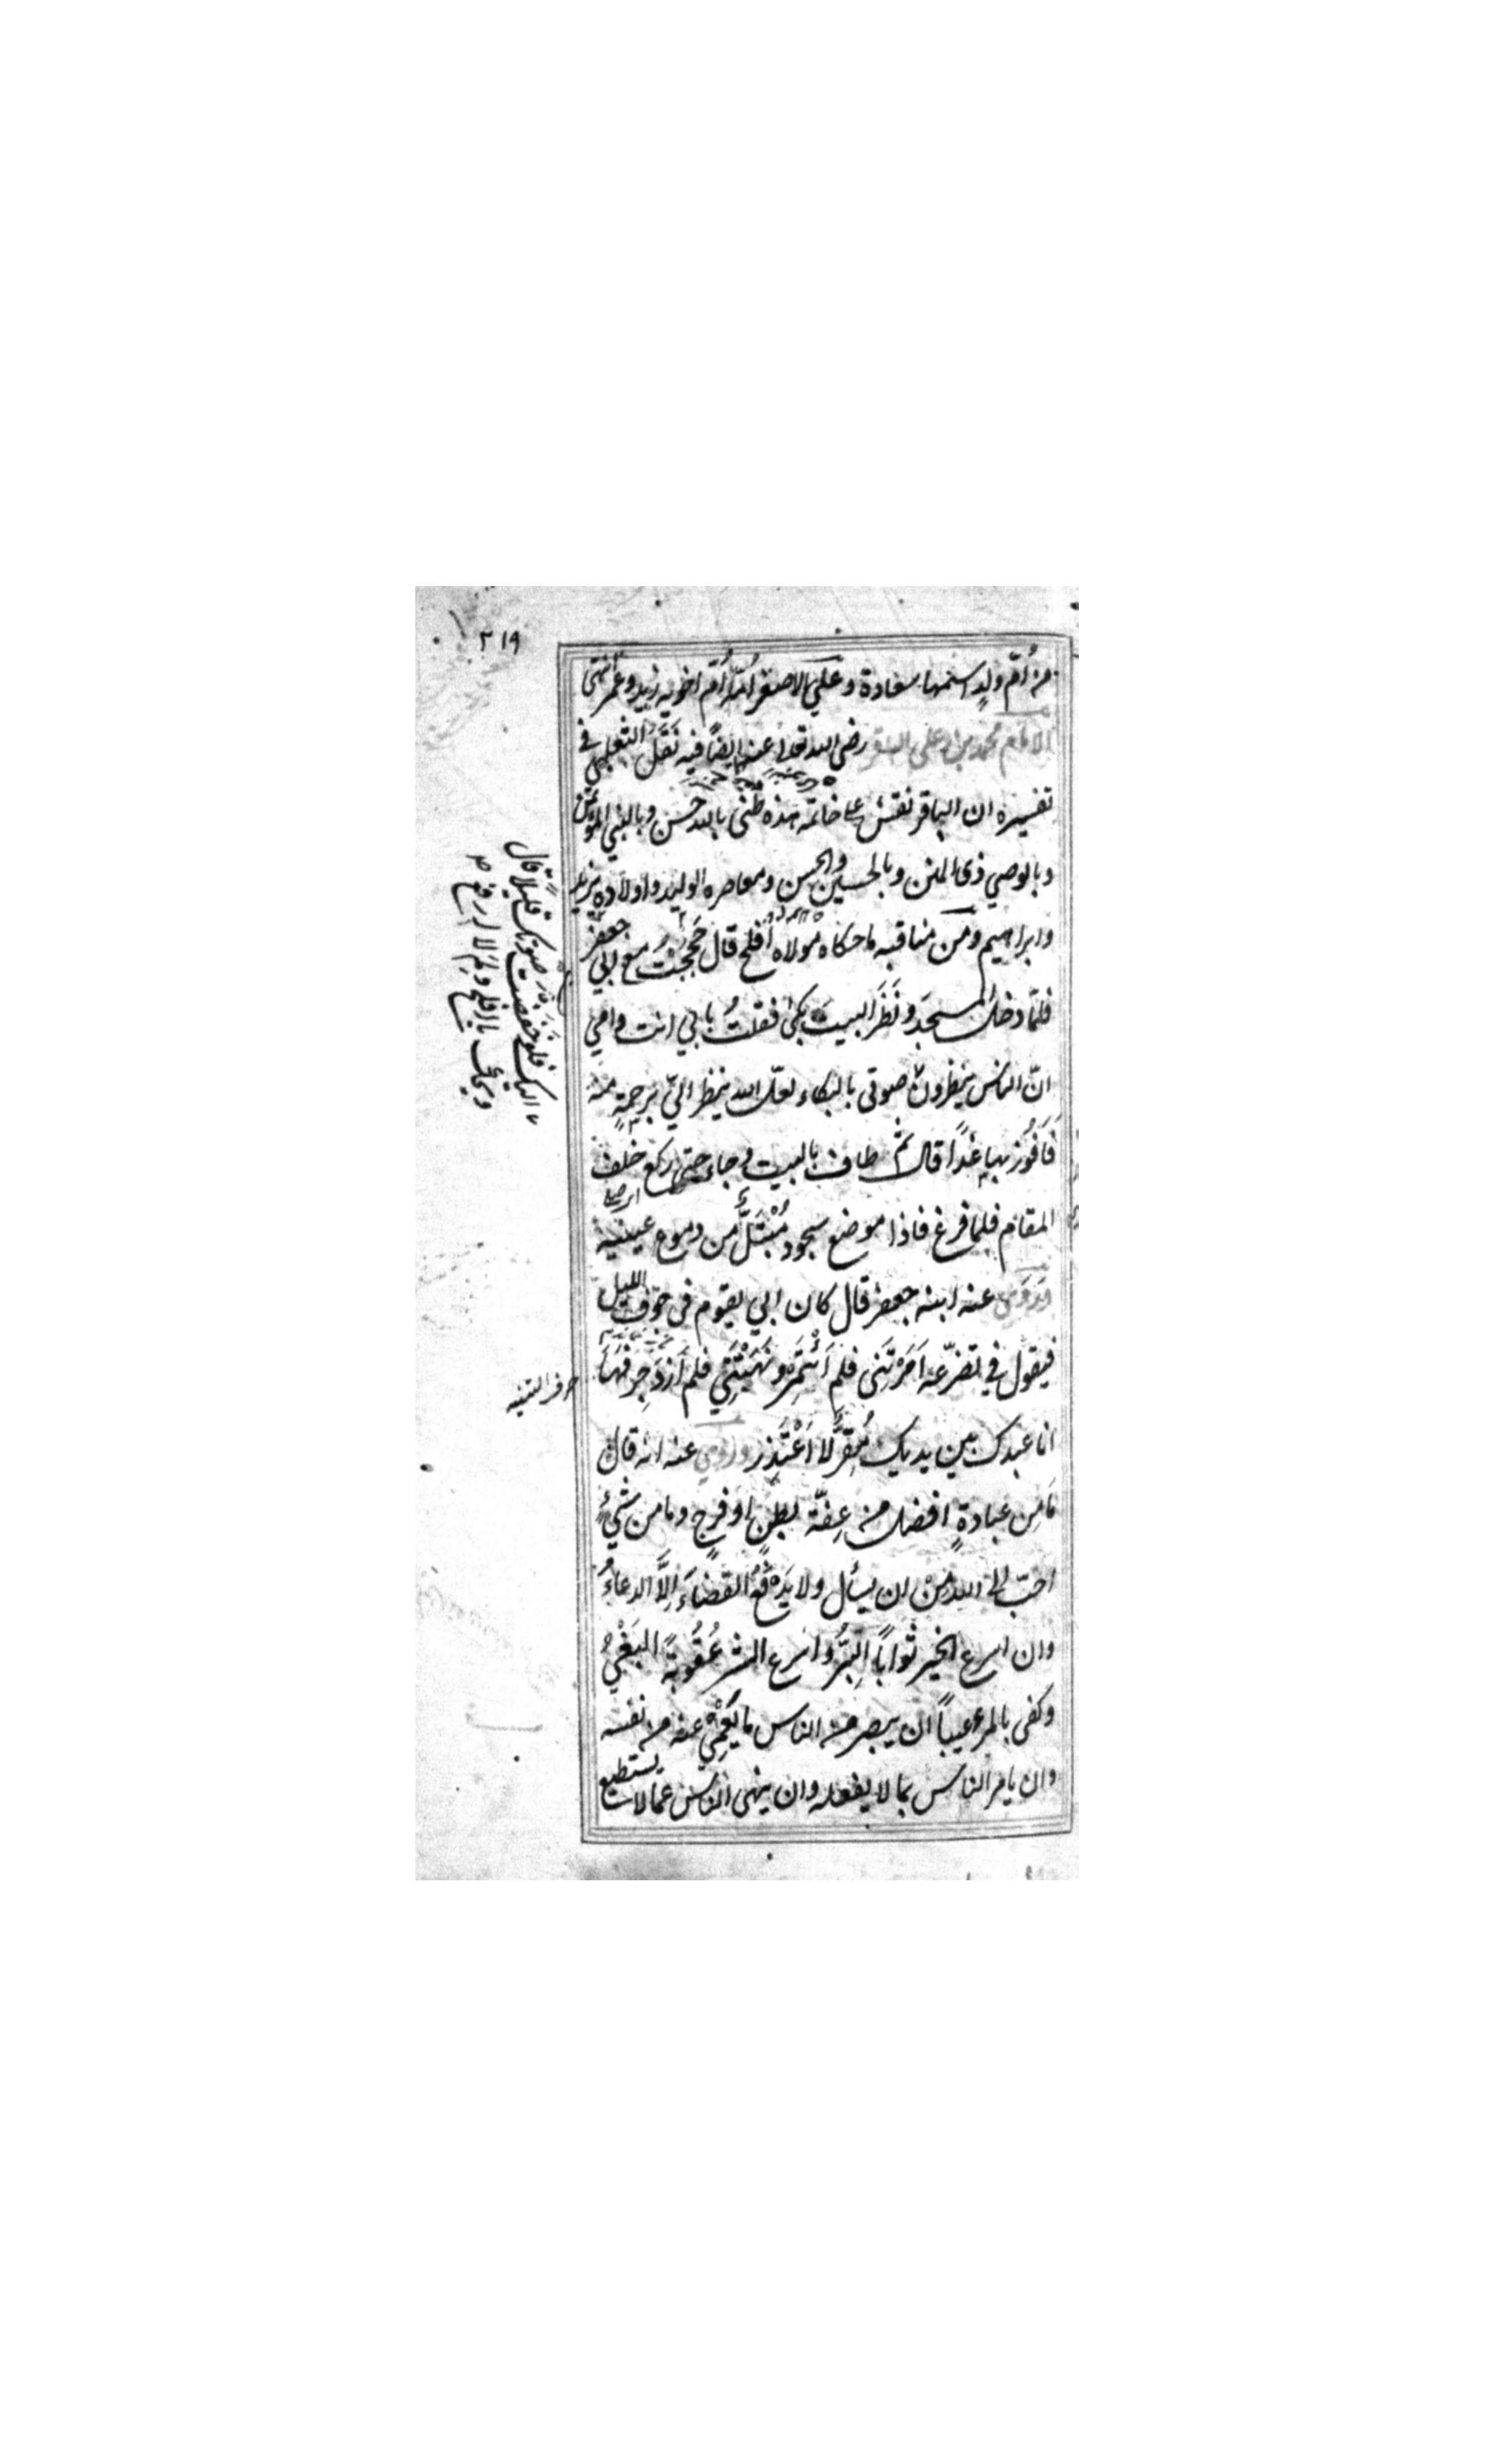 ٢١٩
من أُمّ ولدٍ اسمها سعادة وعلي الاصغر أُمّه أُمّ اخويه زيد وعمر انتهى
الامام محمد بن علي الباقر رضي الله تعالى عنه ايضًا فيه نَقَلَ الثعلبي في
تفسيره ان الباقر نقش على خاتمه هذه ظنى بالله حسن وبالنبي المؤتمن
وبالوصي ذى المنن وبالحسين والحسن ومعاصره الوليد واولاده يزيد
وابراهيم ومن مناقبه ما حكاه مولاه أفلح قال حَجَجْتُ مع ابي جعفر
فلمّا دخل المسجدَ ونَظَرَ البيتَ بكى فقلتُ بابي انت وامي
انّ الناس ينظرون صوتى بالبكاء لعلّ الله ينظر اليّ برحمةٍ منه
فَأفُوزَ بها غدًا قال ثم طاف بالبيت وجاء حتى ركع خلف
المقام فلما فرغ فاذا موضع سجوده مُبْتَلٌّ من دموع عينيه
ورَوَى عنه ابنه جعفر قال كان ابي يقوم فى جوف الليل
فيقول في تضرّعه اَمَرْتَنى فلم أئتمر ونَهَيْتَنِي فلم اَزْدَجِر فهَا
انا عبدك بين يديك مُقِرٌّ لا اَعْتَذِر وروي عنه انه قال
مَا مِن عبادةٍ افضل من عِفّة بطنٍ اوفرجٍ وما من شيءٍ
احبّ الى الله مِنْ ان يسأل ولا يَدْفَعُ القضَاءَ اِلَّا الدعاءُ
وان اسرع الخير ثوابًا اَلبِرُّ واسرع الشر عُقُوبةً البَغْيُ
وكفى بالمرء عيبًا ان يبصر من الناس ما يَعْمِيْ عنه من نفسه
وان يامر الناس بما لا يفعله وان ينهى الناس عما لا يستطيع
اليك فلو خفضت صوتك قليلًا قال
ويحك يا افلح ولِمَ لا ارفع